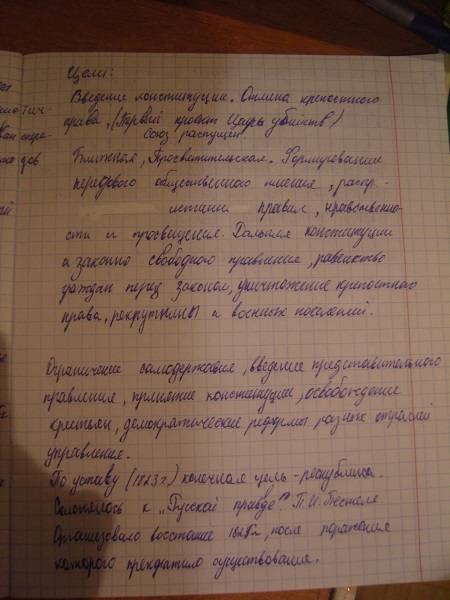 Цели:
Введение конституции. Отмена крепостного
права. (Первый проект Цареубийств)
Союз распущен
Ближняя, Просветительская. Формирование
передового общественного мнения, распр-
правил, нравственно-
сти и просвещения. Дальняя конституции
и законно свободного правление, равенство
граждан перед законом, уничтожение крепостного
права, рекрутчины и военных поселений.
Ограничение самодержавия, введение представительного
правления, принятие конституции, освобождение
крестьян, демократические реформы разных отраслей
управления.
По уставу (1823 г.) конечная цель - республика.
Склонялось к "Русской правде" П.И. Пестеля.
Организовало восстание 1825г, после поражения
которого прекратило существования.